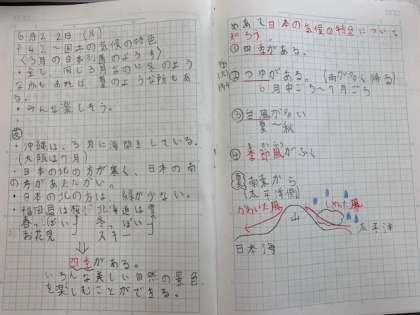 6月22日(月)
P42～国土の気候の特色
<3月の日本列島のようす>
・全て、同じ3月なのに冬のよう
なかもあれば、夏のような所もあ
る。
・みんな楽しそう。
・沖縄は、3月に海開きしている。
(大阪は7月)
・日本の北の方が寒く、日本の南
の方があたたかい。
・日本の北の方は、緑が少ない。
・福田県は桜 北海道は雪
春っぽい 冬っぽい
お花見 スキー
四季がある。
いろんな美しい自然の景色
を楽しむことができる。
めあて日本の気候の特色について
知ろう。
①四季がある。
②つゆがある。(雨が多く降る)
6月中ごろ～7月ごろ
③台風が多い
夏～秋
④季節風がふく
夏 南東から
(太平洋側)
かわいた風
しめった風
山
太平洋
日本海